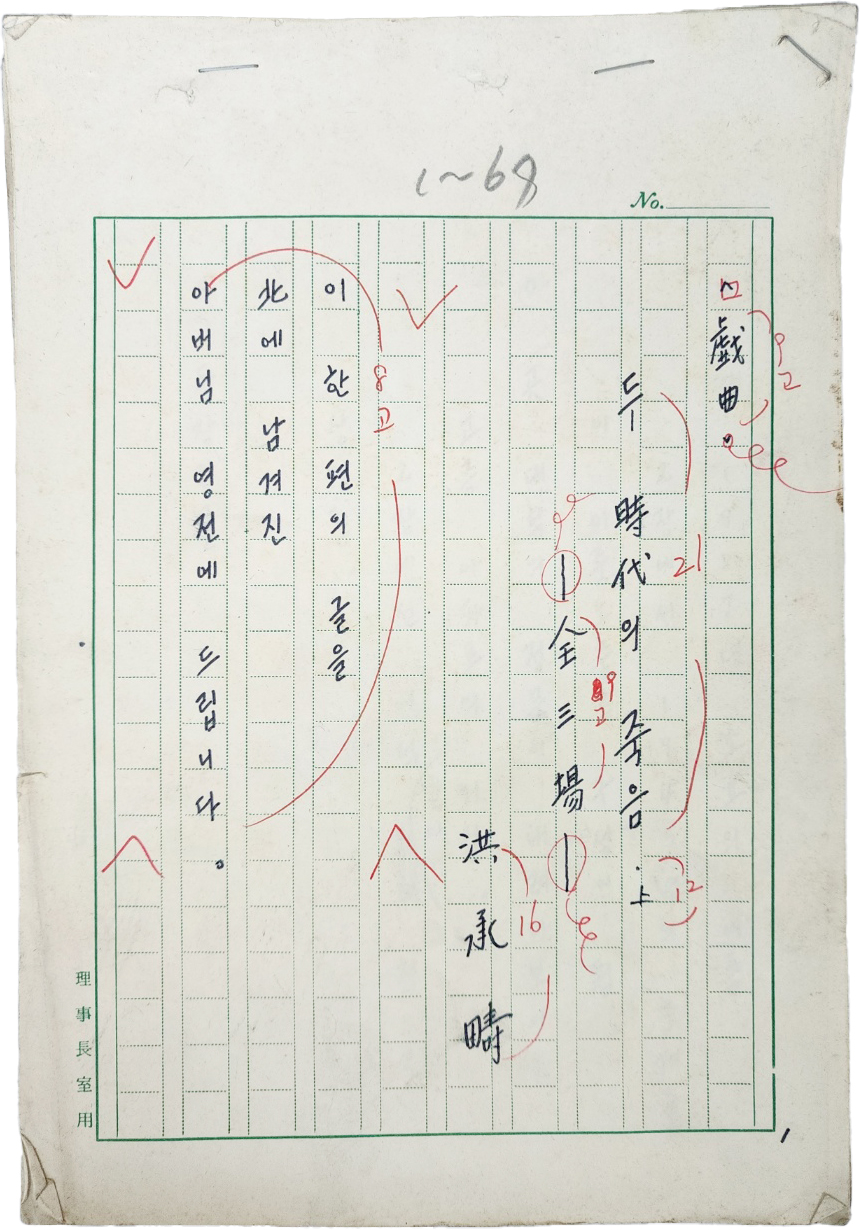 1~68
No.
戱曲
두 時代의 죽음·上
―全三場―
洪承疇
이 한 편의 글을
北에 남겨진
아버님 영전에 드립니다。
9고
21
12
9고
16
8고
理事長室用
1